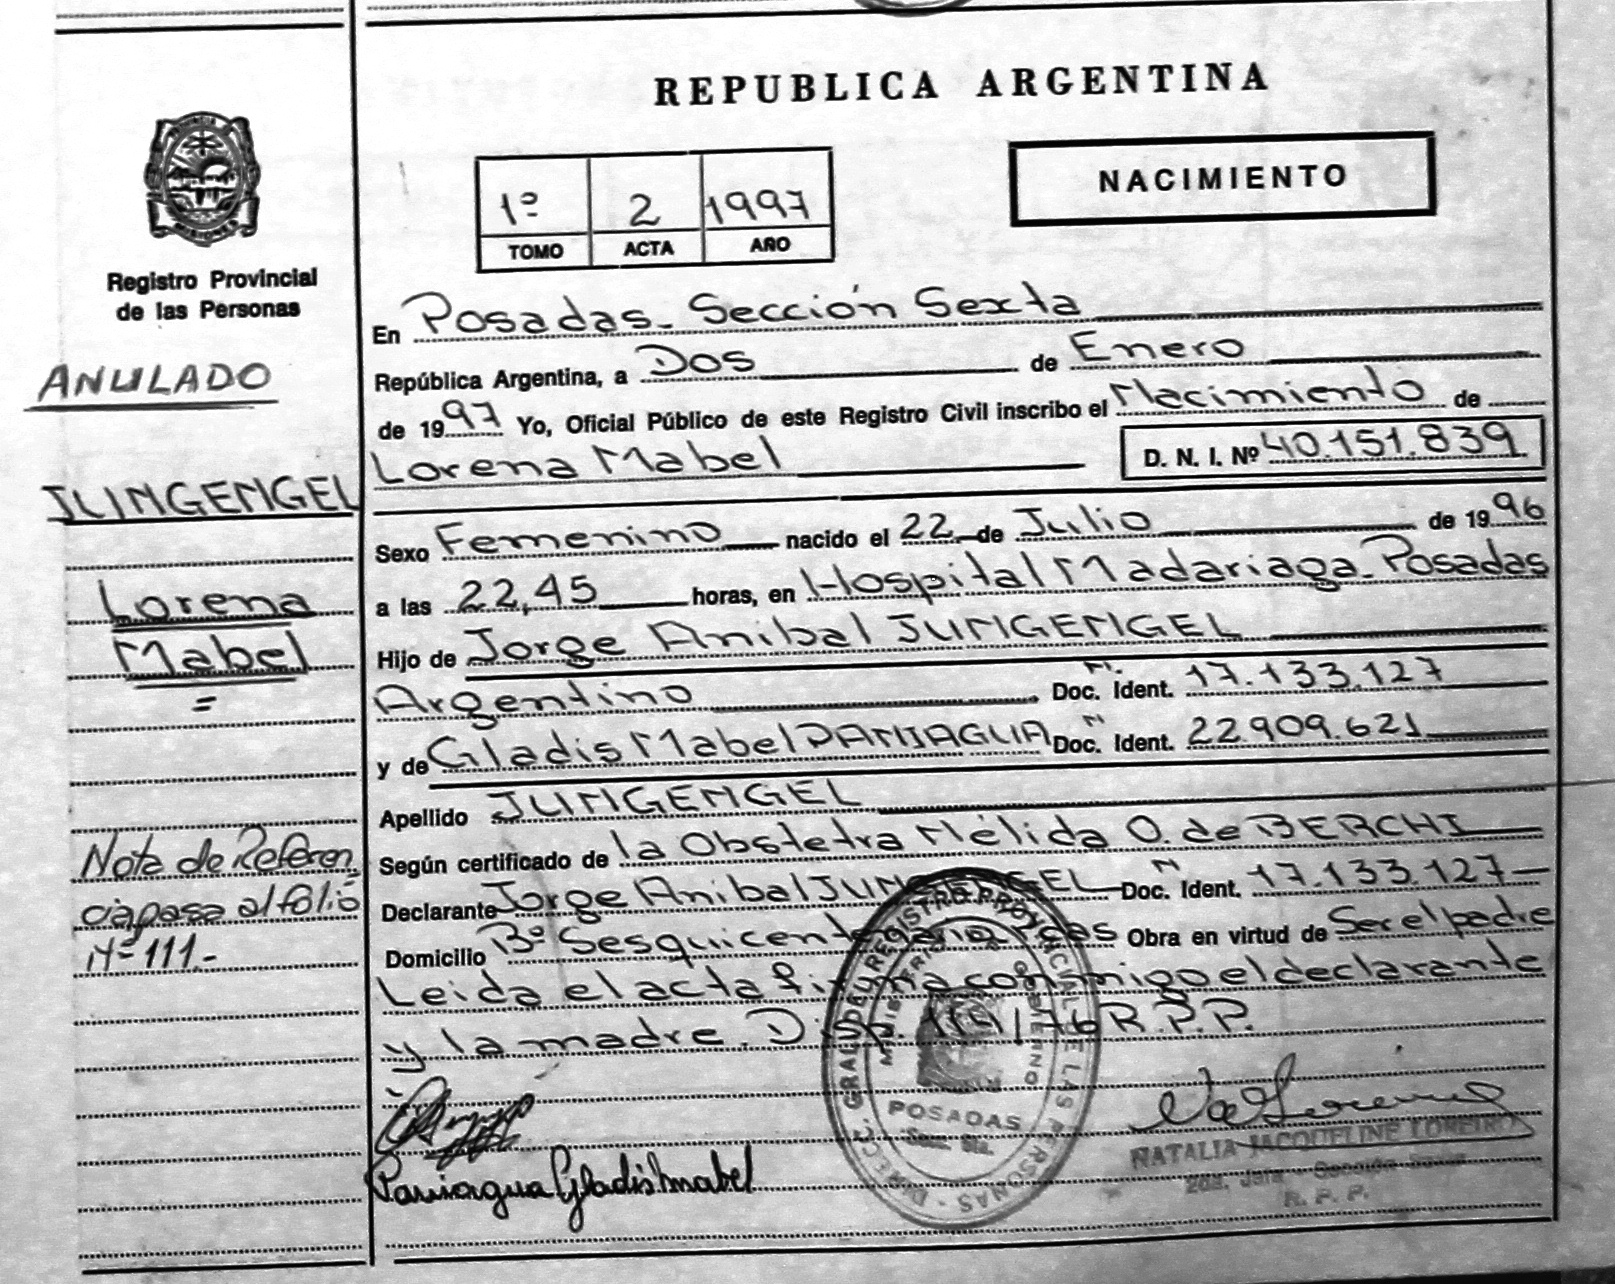 REPUBLICA ARGENTINA
NACIMIENTO
1º 2 1997
TOMO ACTA AÑO
MISIONES
Registro Provincial
de las Personas
ANULADO
JUNGENGEL
Lorena
Mabel
=
Nota de Referen
cia pasa al folio
Nº 111.-
En Posadas - Sección Sexta
República Argentina, a Dos de Enero
de 1997 Yo, Oficial Público de este Registro Civil inscribo el Nacimiento de
Lorena Mabel D. N. I. Nº 40.151.839
Sexo Femenino nacido el 22 de Julio de 1996
a las 22,45 horas, en Hospital Madariaga - Posadas
Hijo de Jorge Anibal JUNGENGEL
Argentino Doc. N. Ident. 17.133.127
y de Gladis Mabel PANIAGUA Doc. N Ident. 22.909.621
Apellido JUNGENGEL
Según certificado de la Obstetra Nélida O. de BERCHI
Declarante Jorge Anibal JUNGENGEL Doc. N Ident. 17.133.127
Domicilio Bº Sesquicentenario Pdas Obra en virtud de Ser el padre
Leida el acta firma conmigo el declarante
y la madre. Disp. 119/76 R.P.P.
Paniagua Gladis mabel
DIRECC. GRAL. DEL REGISTRO PROVINCIAL DE LAS PERSONAS
MINISTERIO DE GOBIERNO
POSADAS
Secc. 6ta.
NATALIA JACQUELINE LOREIRO
2da. Jefa Sección Sexta
R. P. P.